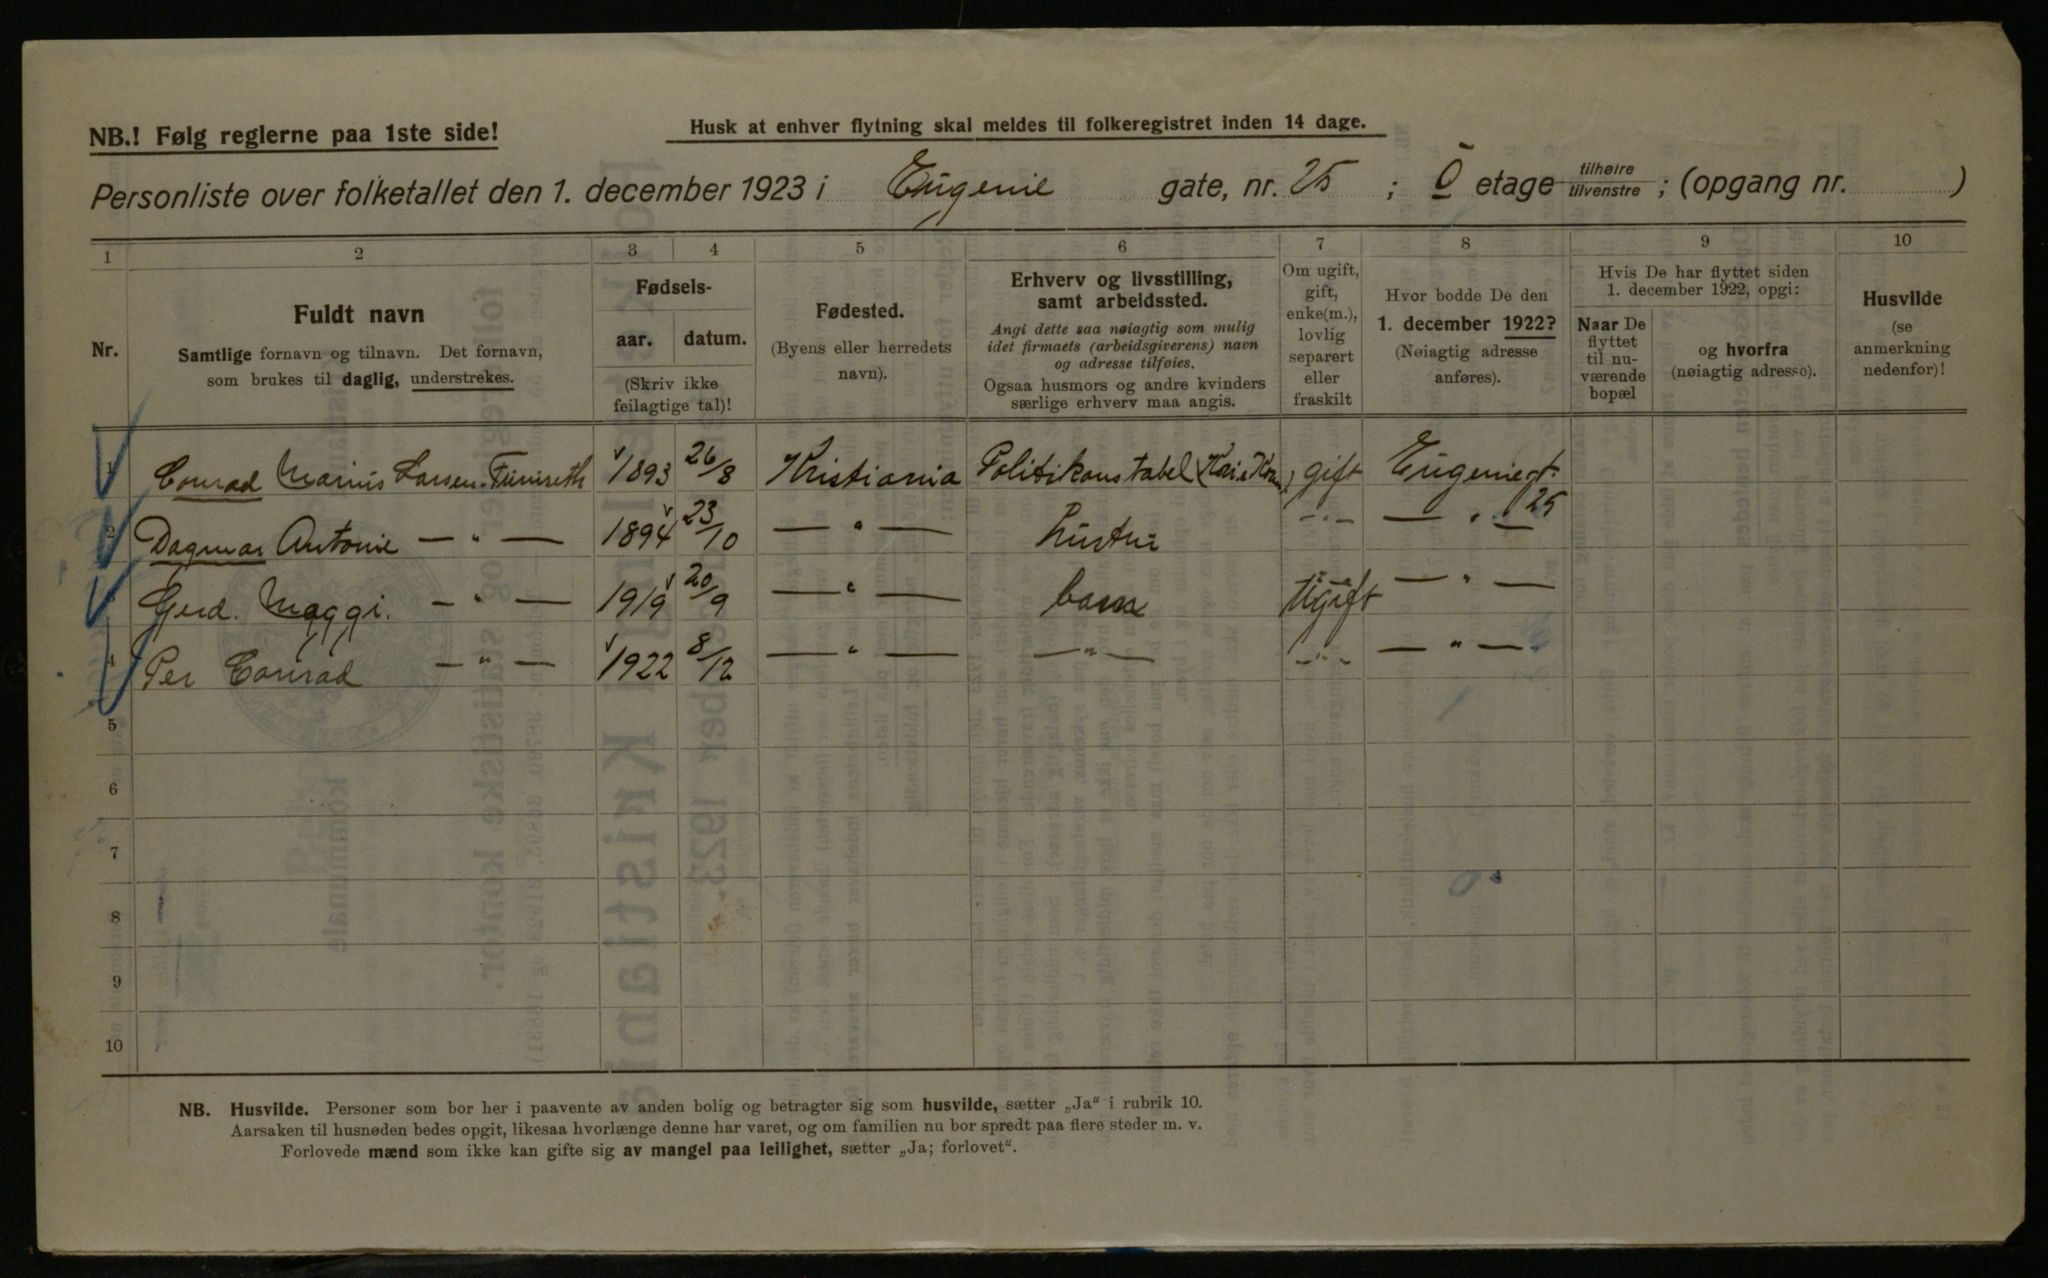 NB.! Følg reglerne paa 1ste side!
Husk at enhver flytning skal meldes til folkeregistret inden 14 dage.
Personliste over folketallet den 1. december 1923 i Eugenie gate, nr. 25 ; Ō etage tilhøire tilvenstre ; (opgang nr. )
1 2 3 4 5 6 7 8 9 10
Nr.
Fuldt navn
Samtlige fornavn og tilnavn. Det fornavn,
som brukes til daglig, understrekes.
Fødsels-
aar. datum.
(Skriv ikke
feilagtige tal)!
Fødested.
(Byens eller herredets
navn).
Erhverv og livsstilling,
samt arbeidssted.
Angi dette saa nøiagtig som mulig
idet firmaets (arbeidsgiverens) navn
og adresse tilføies.
Ogsaa husmors og andre kvinders
særlige erhverv maa angis.
Om ugift,
gift,
enke(m.),
lovlig
separert
eller
fraskilt
Hvor bodde De den
1. december 1922?
(Nøiagtig adresse
anføres).
Hvis De har flyttet siden
1. december 1922, opgi:
Naar De
flyttet
til nu-
værende
bopæl
og hvorfra
(nøiagtig adresse).
Husvilde
(se
anmerkning
nedenfor)!
1 Conrad Marius Larsen-Finnseth 1893 26/8 Kristiania Politikonstabel gift Eugeniegt. 25
2 Dagmar Antonie — " — 1894 23/10 — " — hustru - " - — " —
3 Gerd. Maggi. — " — 1919 20/9 — " — barn Ugift — " —
4 Per Conrad — " — 1922 8/12 — " — — " — - " - — " —
5
6
7
8
9
10
NB. Husvilde. Personer som bor her i paavente av anden bolig og betragter sig som husvilde, sætter „Ja“ i rubrik 10.
Aarsaken til husnøden bedes opgit, likesaa hvorlænge denne har varet, og om familien nu bor spredt paa flere steder m. v.
Forlovede mænd som ikke kan gifte sig av mangel paa leilighet, sætter „Ja; forlovet“.